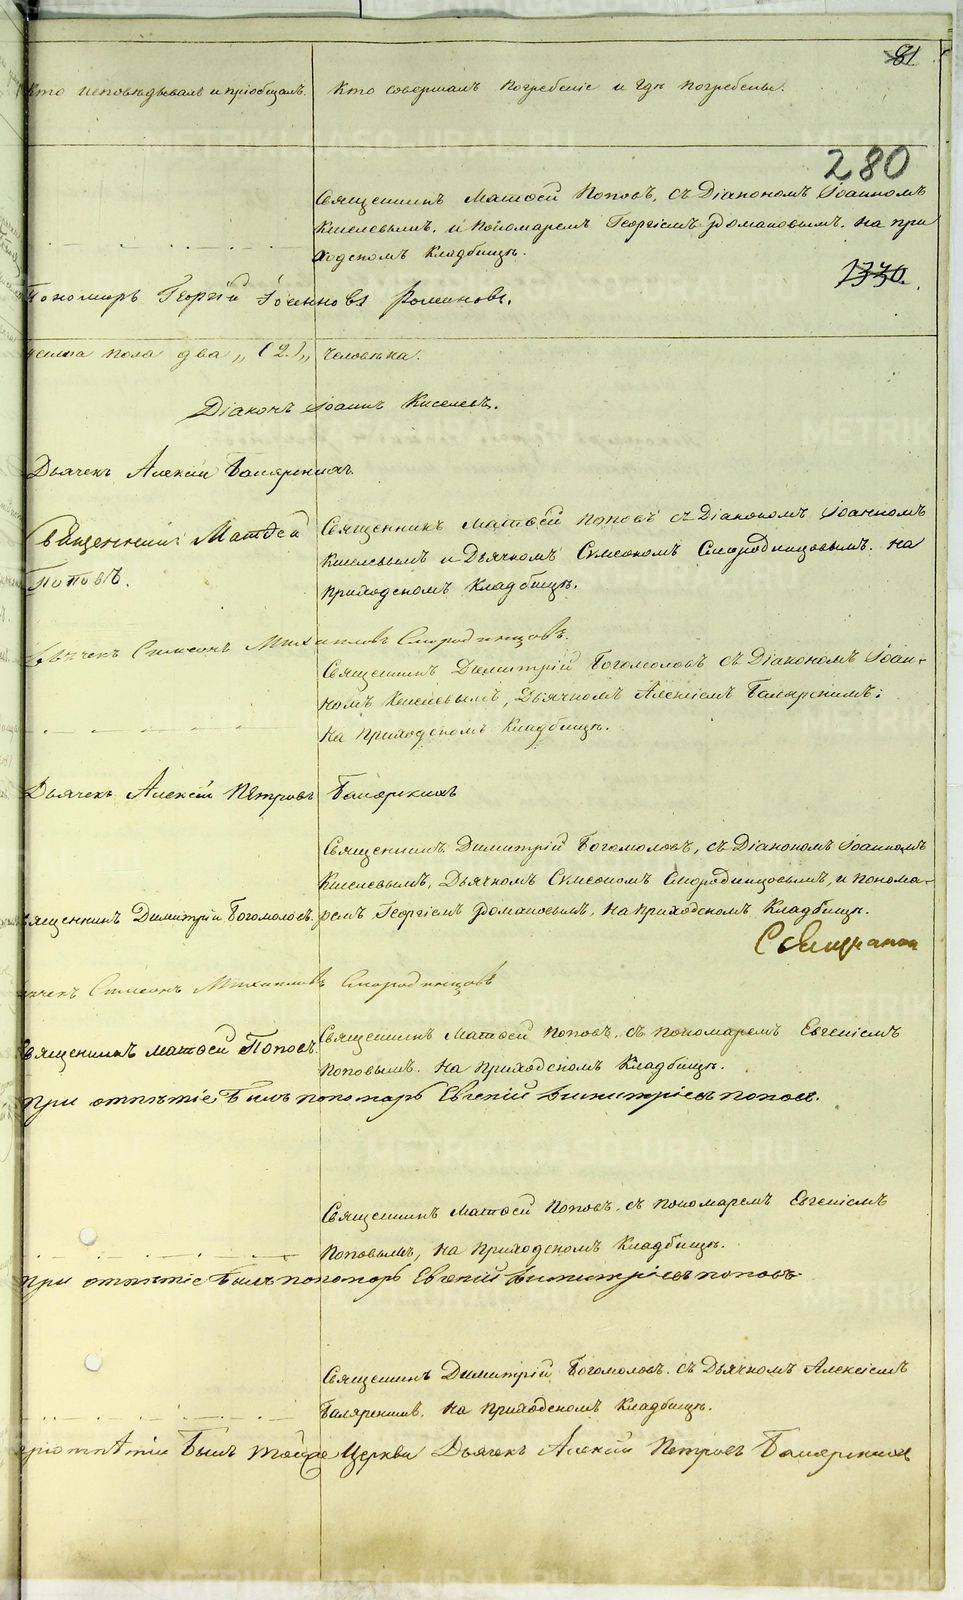 81
Кто исповѣдывалъ и пріобщалъ.
Кто совершалъ погребеніе и гдѣ погребены.
280
Священникъ Матѳей Поповъ, съ Діакономъ Іоанномъ
Киселевымъ, и Пономаремъ Георгіемъ Романовымъ. на при
ходскомъ Кладбищѣ.
1330.
Пономарь Георгій Іоанновъ Романовъ.
пола два „(2)„ человѣка.
Діаконъ Іоаннъ Киселевъ.
Дьячекъ Алексій Баляркинъ
Священникъ Матѳей
Поповъ.
Священникъ Матѳей Поповъ съ Діакономъ Іоанномъ
Киселевымъ и Дьячкомъ Симеономъ Смородинцовымъ. на
приходскомъ Кладбищѣ.
Дьячекъ Симеонъ Михаиловъ Смородинцовъ.
Священникъ Димитрій Богомоловъ съ Діакономъ Іоан-
номъ Киселевымъ, Дьячкомъ Алексіемъ Баляркинымъ;
на приходскомъ Кладбищѣ.
Дьячекъ Алексій Петровъ Баляркинъ
Священникъ Димитрій Богомоловъ, съ Діакономъ Іоанномъ
Киселевымъ, Дьячкомъ Симеономъ Смородинцовымъ, и понома-
Священникъ Димитрій Богомоловъ.
ремъ Георгіемъ Романовымъ, на приходскомъ Кладбищѣ.
Симеонъ Михаиловъ Смородинцовъ
Священникъ Матѳей Поповъ.
Священникъ Матѳей Поповъ. съ пономаремъ Евгеніемъ
Поповымъ. на приходскомъ Кладбищѣ.
при отпѣтіе былъ пономарь Евгеній Димитріевъ Поповъ.
Священникъ Матѳей Поповъ. съ пономаремъ Евгеніемъ
Поповымъ, на приходскомъ Кладбищѣ.
при отпѣтіе былъ пономарь Евгеній Димитріевъ Поповъ
Священникъ Димитрій Богомоловъ. съ Дьячкомъ Алексіемъ
на приходскомъ Кладбищѣ.
при отпѣтіи былъ тойже Церкви Дьячекъ Алексій Петровъ Баляркинъ